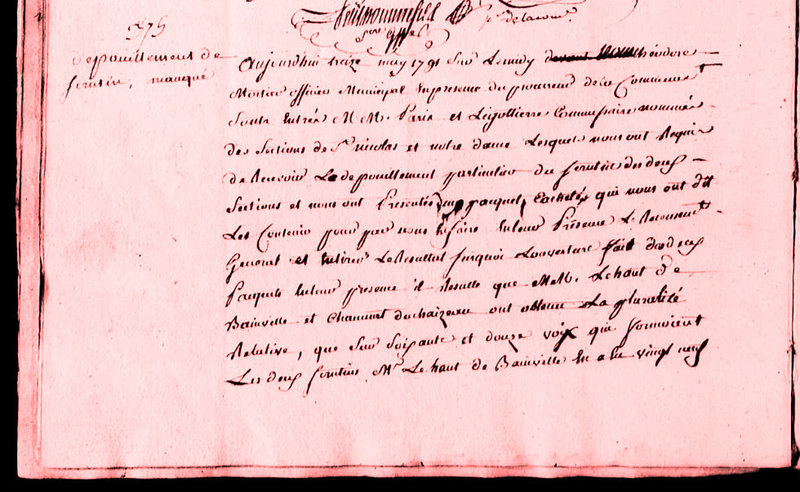 depouillement de
scrutin, manqué
Aujourdhui treize may 1791 Sur Le midy devant Theodore
Mortier officier Municipal En presence du procureur de la Commune
Sont Entrés M M. Paris et Commissaire nommés
des Sections de St nicolas et notre dame Lesquels nous ont Requis
de Recevoir Le depouillement particulier du scrutin des deux
Sections et nous ont Presentés paquets Cachetés qui nous ont dit
Les Contenir pour par nous En faire En leur Presence Le Recensemt
General et Entirer Le Resultat surquoi Louverture fait des deux
Paquets En leur presence il Resulte que MM. Lehaut de
Bainville et ont obtenu La pluralité
Relative, que Sur Soixante et douze voix qui formoient
Les deux scrutins Mr Lehaut de Bainville En a Eu vingt neuf